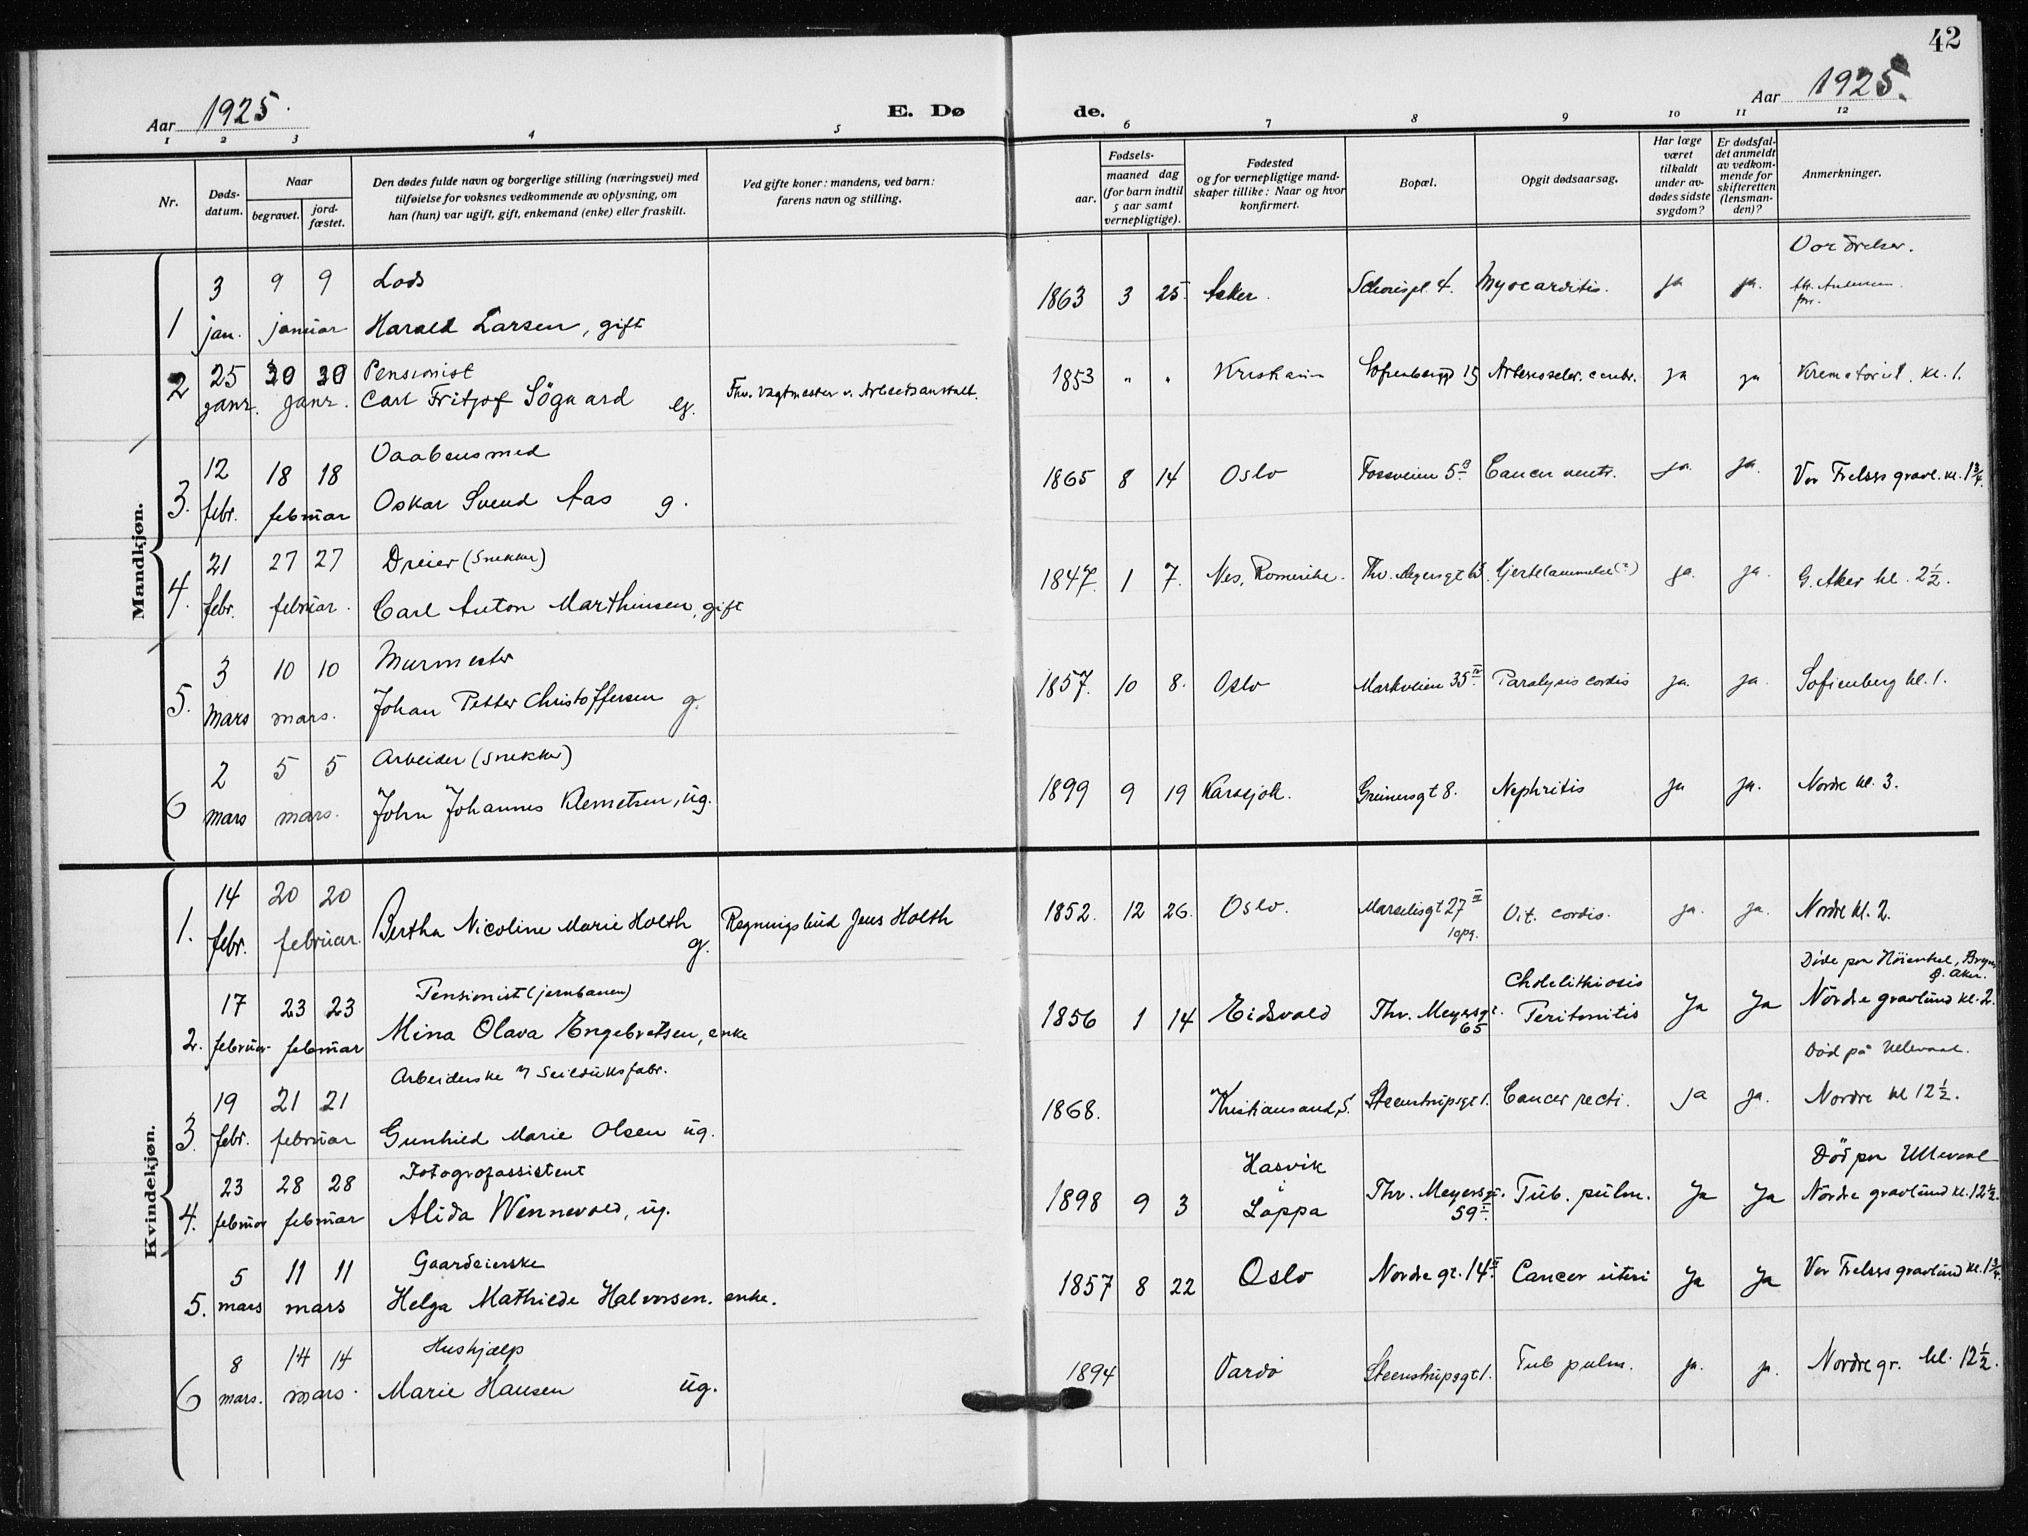 42
Aar 1925.
E. Døde.
Aar 1925.
1 2 3 4 5 6 7 8 9 10 11 12
Nr.
Døds-
datum.
Naar
begravet.
jord-
fæstet.
Den dødes fulde navn og borgerlige stilling (næringsvei) med
tilføielse for voksnes vedkommende av oplysning, om
han (hun) var ugift, gift, enkemand (enke) eller fraskilt.
Ved gifte koner: mandens, ved barn:
farens navn og stilling.
aar.
Fødsels-
maaned dag
(for barn indtil
5 aar samt
vernepligtige).
Fødested
og for vernepligtige mand-
skaper tillike: Naar og hvor
konfirmert.
Bopæl.
Opgit dødsaarsag.
Har læge
været
tilkaldt
under av-
dødes sidste
sygdom?
Er dødsfal-
det anmeldt
av vedkom-
mende for
skifteretten
(lensman-
den)?
Anmerkninger.
Mandkjøn.
Vor Frelser.
3 9 9 Lods 1863 3 25. Asker. Schouspl. 4. Myocarditis. ja ja.
1 jan. januar Harald Larsen, gift
25 30 30 Pensionist 1853 " " Kristiania Sofienbergg 15 ja ja Krematoriet. kl. 1.
2 janr. janr. Carl Fritjof Søgaard eg. Fhv. vagtmester v. Arbeidsanstalt.
12 18 18 Vaabensmed 1865 8 14 Oslo Fossveien 5 Cancer ventr. ja. ja. Vor Frelsers gravl. kl. 1 3/4.
3. febr. februar Oskar Svend Aas g.
21 27 27 Dreier (snekker) 1847. 1 7. Nes, Romerike. Thv. Meyersgt Hjertelammelse (?) ja. ja. G. Aker kl. 2 1/2.
4. febr. februar. Carl Anton Marthinsen, gift
3 10 10 Murmester 1857. 10 8. Oslo Markveien 35 IV. Paralysis cordis ja. ja. Sofienberg kl. 1.
5. mars mars. Johan Petter Christoffersen g.
2 5 5 Arbeider (snekker) 1899 9 19 Karasjok. Grünersgt 8. Nephritis ja ja. Nordre kl. 3.
6 mars mars. John Johannes Klemetsen, ug.
Kvindekjøn.
14 20 20 1852. 12 26. Oslo. Marselisgt 27 II Vit. cordis. ja. ja. Nordre kl. 2.
1. febr. februar. Bertha Nicoline Marie Holth g. Regningsbud Jens Holth
1 opg.
Døde paa Høienhal, Bryn,
Ø. Aker.
17 23 23 Pensionist (jernbanen) 1856 1 14 Eidsvold Thv. Meyersgt. 65 Cholelithiosis Peritonitis Ja Ja Nordre gravlund kl. 2.
2. februar. februar Mina Olava Engebretsen, enke
Død på Ullevaal.
Arbeiderske v/ Seilduksfabr.
19 21 21 1868. Kristiansand, S. Steenstrupsgt 1. Cancer recti. ja ja. Nordre kl 12 1/2.
3. febr. februar Gunhild Marie Olsen ug.
Død paa Ullevaal
23 28 28 Fotografassistent 1898 9 3 Hasvik i Loppa Thv. Meyersgt. 59 I. Tub. pulm. Ja Ja Nordre gravlund kl. 12 1/2.
4. februar februar Alida Wennevold, ug.
5 11 11 Gaardeierske 1857 8 22 Oslo Nordregt. 14 II. Cancer uteri Ja Ja Vor Frelsers gravlund kl. 1 3/4.
5. mars mars Helga Mathilde Halvorsen. enke.
8 14 14 Hushjælp 1894 Vardø Steenstrupsgt 1. Tub pulm. ja. ja. Nordre gr. kl. 12 1/2.
6 mars. mars. Marie Hansen ug.